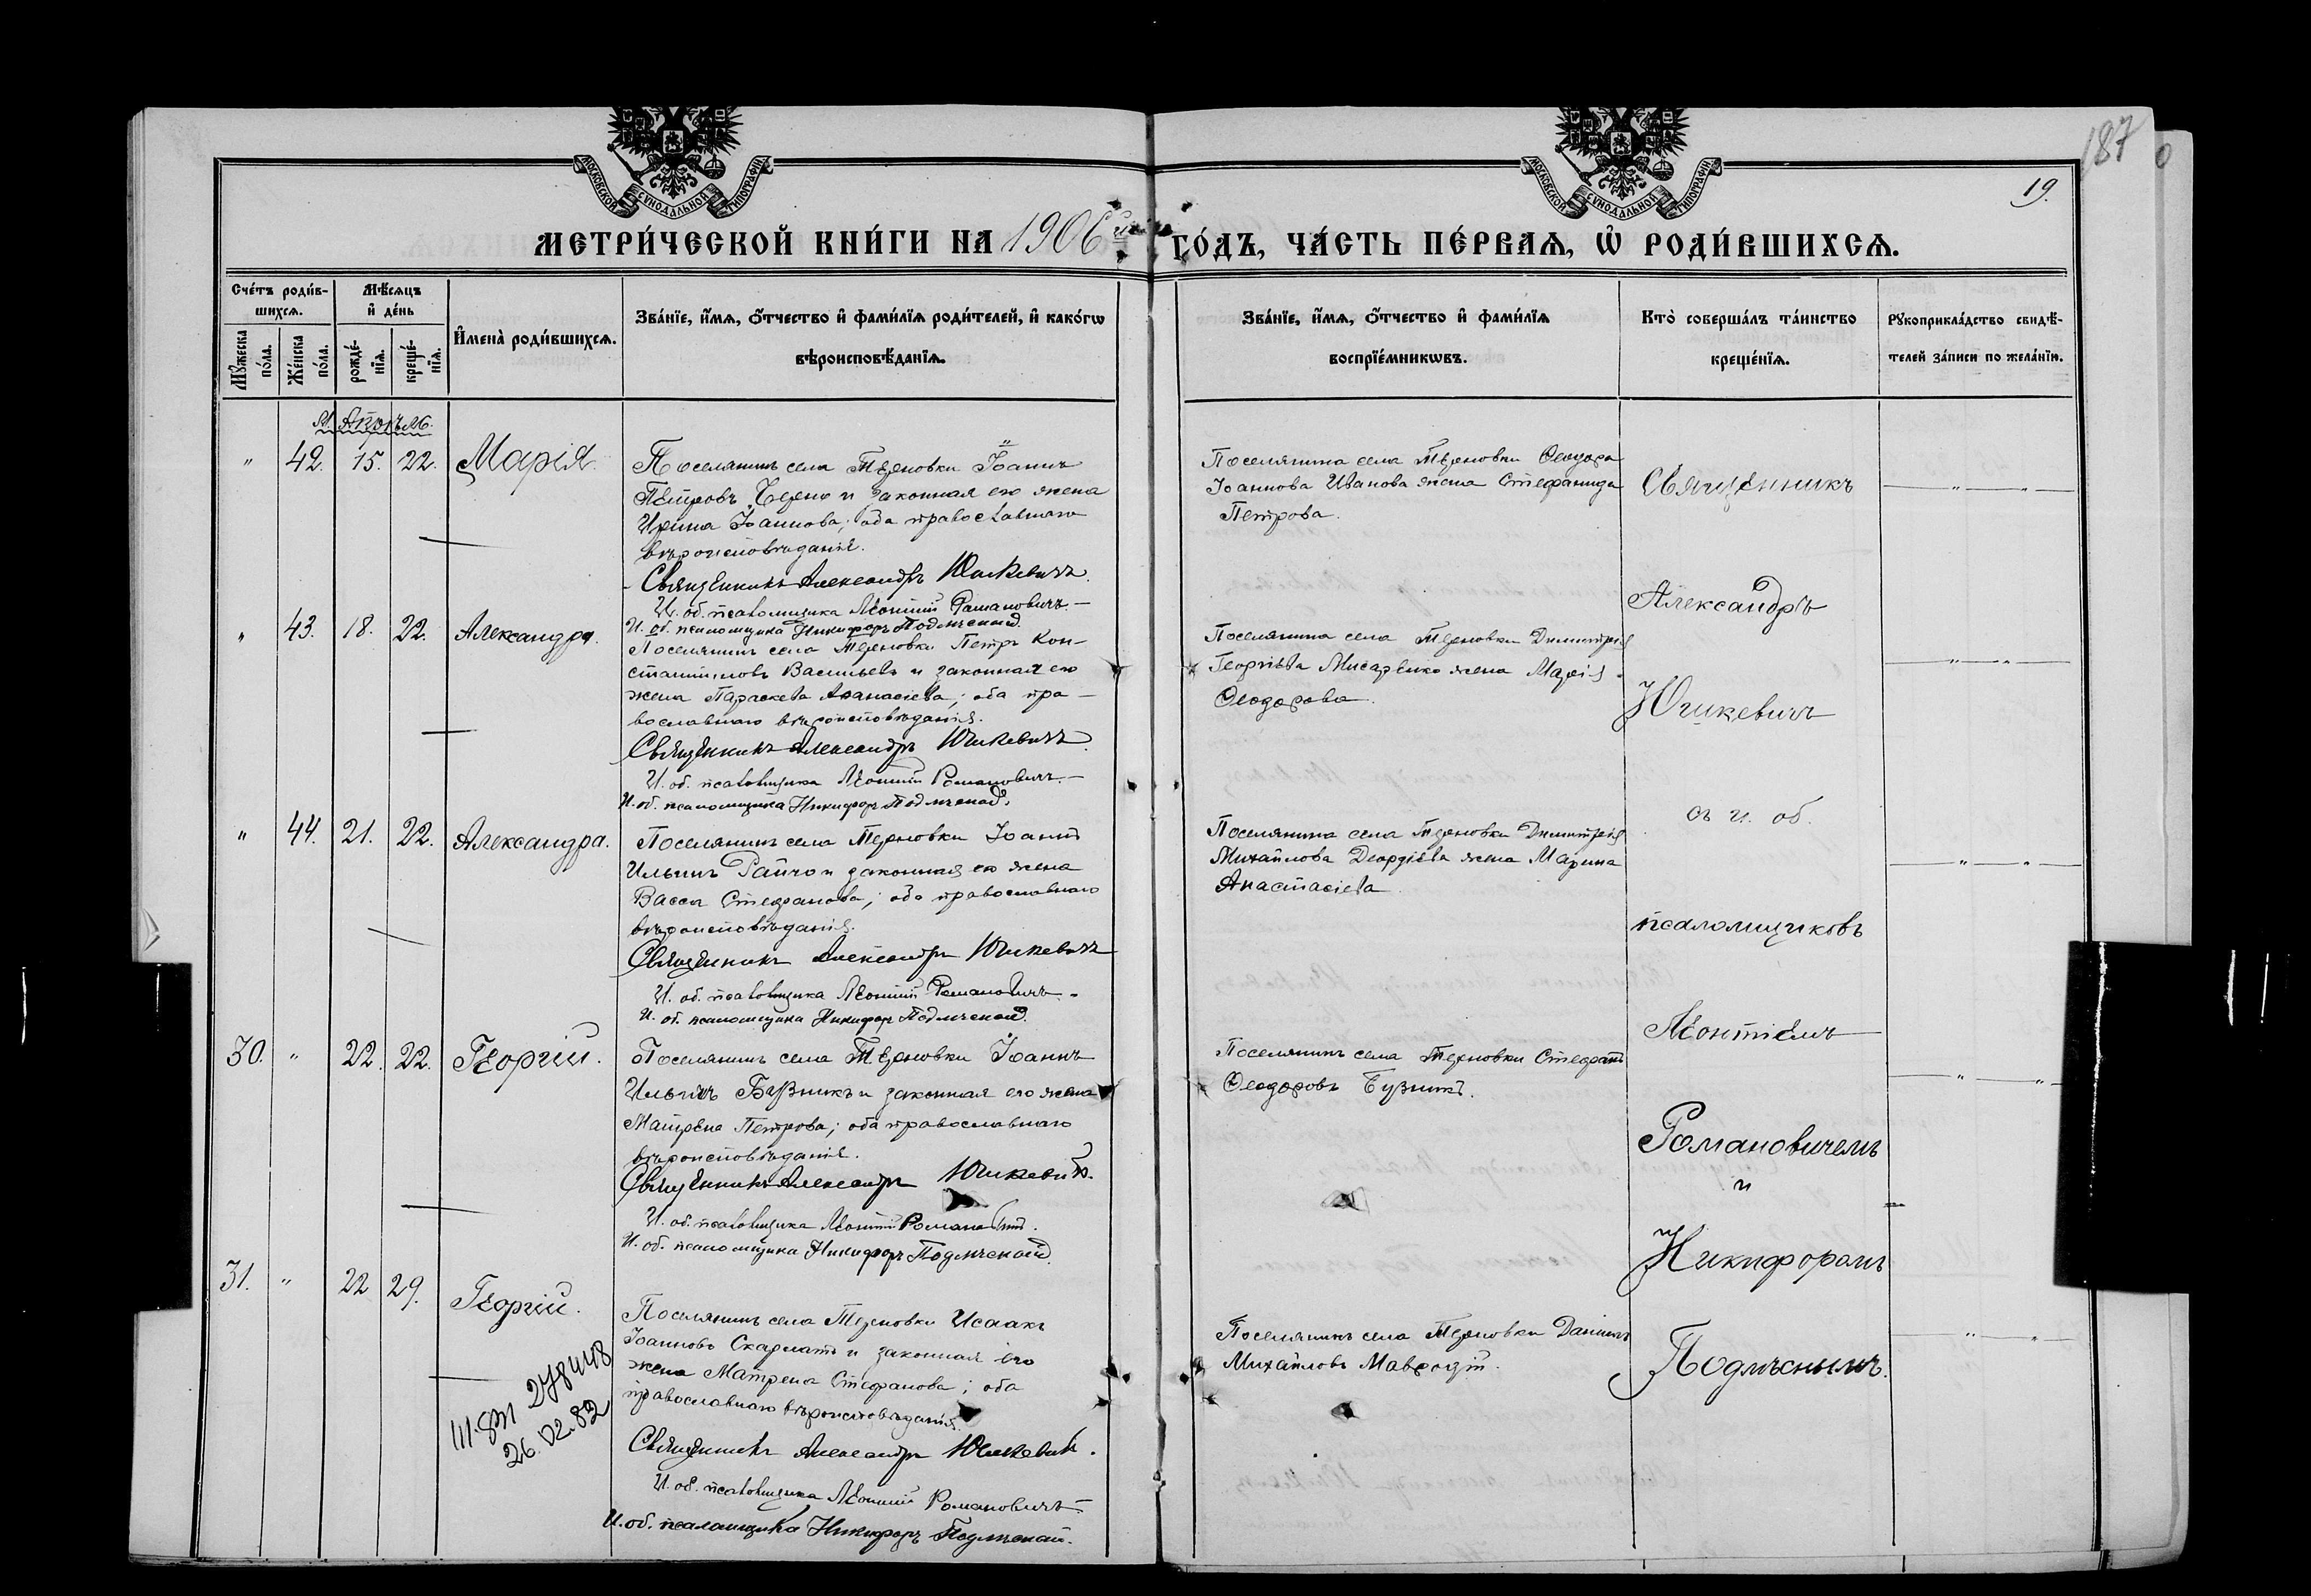 187
19.
МОСКОВСКОЙ СѴНОДАЛЬНОЙ ТИПОГРАФІИ
МОСКОВСКОЙ СѴНОДАЛЬНОЙ ТИПОГРАФІИ
МЕТРИ́ЧЕСКОЙ КНИ́ГИ НА 1906 ГО́ДЪ, ЧА́СТЬ ПЕ́РВАѦ, Ѡ҆ РОДИ́ВШИХСѦ.
Сче́тъ роди́в-
шихсѧ.
Мꙋ́жеска
по́ла.
Же́нска
по́ла.
Мѣ́сѧцъ
и҆ де́нь
рожде́-
нїѧ.
креще́-
нїѧ.
И҆мена̀ роди́вшихсѧ.
Зва́нїе, и҆́мѧ, ѻ҆́тчество и҆ фами́лїѧ роди́телей, и҆ како́гѡ
вѣроисповѣ́данїѧ.
Зва́нїе, и҆́мѧ, ѻ҆́тчество и҆ фами́лїѧ
воспрїе́мникѡвъ.
Кто̀ соверша́лъ та́инство
креще́нїѧ.
Рꙋкоприкла́дство свидѣ́-
телей за́писи по жела́нїю.
М. Апрѣль.
" 42. 15. 22. Марія.
Поселянинъ села Терновки Іоаннъ
Петровъ Черно и законная его жена
Ирина Іоаннова; оба православнаго
вѣроисповѣданія.
Священникъ Александръ Юшкевичъ.
И. об. псаломщика Леонтій Романовичъ.
И. об. псаломщика Никифоръ Подлѣсный.
Поселянина села Терновки Ѳеодора
Іоаннова Иванова жена Стефанида
Петрова.
" 43. 18. 22. Александра.
Поселянинъ села Терновки Петръ Кон-
стантиновъ Васильевъ и законная его
жена Параскева Аѳанасіева; оба пра-
вославнаго вѣроисповѣданія.
Священникъ Александръ Юшкевичъ.
И. об. псаломщика Леонтій Романовичъ.
И. об. псаломщика Никифоръ Подлѣсный.
Поселянина села Терновки Димитрія
Георгіева Писаренко жена Марія
Ѳеодорова.
" 44. 21. 22. Александра.
Поселянинъ села Терновки Іоаннъ
Ильинъ Райчо и законная его жена
Васса Стефанова; оба православнаго
вѣроисповѣданія.
Священникъ Александръ Юшкевичъ
И. об. псаломщика Леонтій Романовичъ.
И. об. псаломщика Никифоръ Подлѣсный.
Поселянина села Терновки Димитрія
Михайлова жена Марина
Анастасіева.
30. " 22. 22. Георгій.
Поселянинъ села Терновки Іоаннъ
Ильинъ Бузникъ и законная его жена
Матрена Петрова; оба православнаго
вѣроисповѣданія.
Священникъ Александръ Юшкевичъ.
И. об. псаломщика Леонтій Романовичъ.
И. об. псаломщика Никифоръ Подлѣсный.
Поселянинъ села Терновки Стефанъ
Ѳеодоровъ Бузникъ.
31. " 22 29. Георгій.
Поселянинъ села Терновки Исаакъ
Іоанновъ Скарлатъ и законная его
жена Матрена Стефанова; оба
православнаго вѣроисповѣданія.
Священникъ Александръ Юшкевичъ.
И. об. псаломщика Леонтій Романовичъ.
И. об. псаломщика Никифоръ Подлѣсный.
Поселянинъ села Терновки Даніилъ
Михайловъ Мавродій.
278448
26.02.82
Священникъ
Александръ
Юшкевичъ
съ и. об.
псаломщиковъ
Леонтіемъ
Романовичемъ
и
Никифоромъ
Подлѣснымъ.